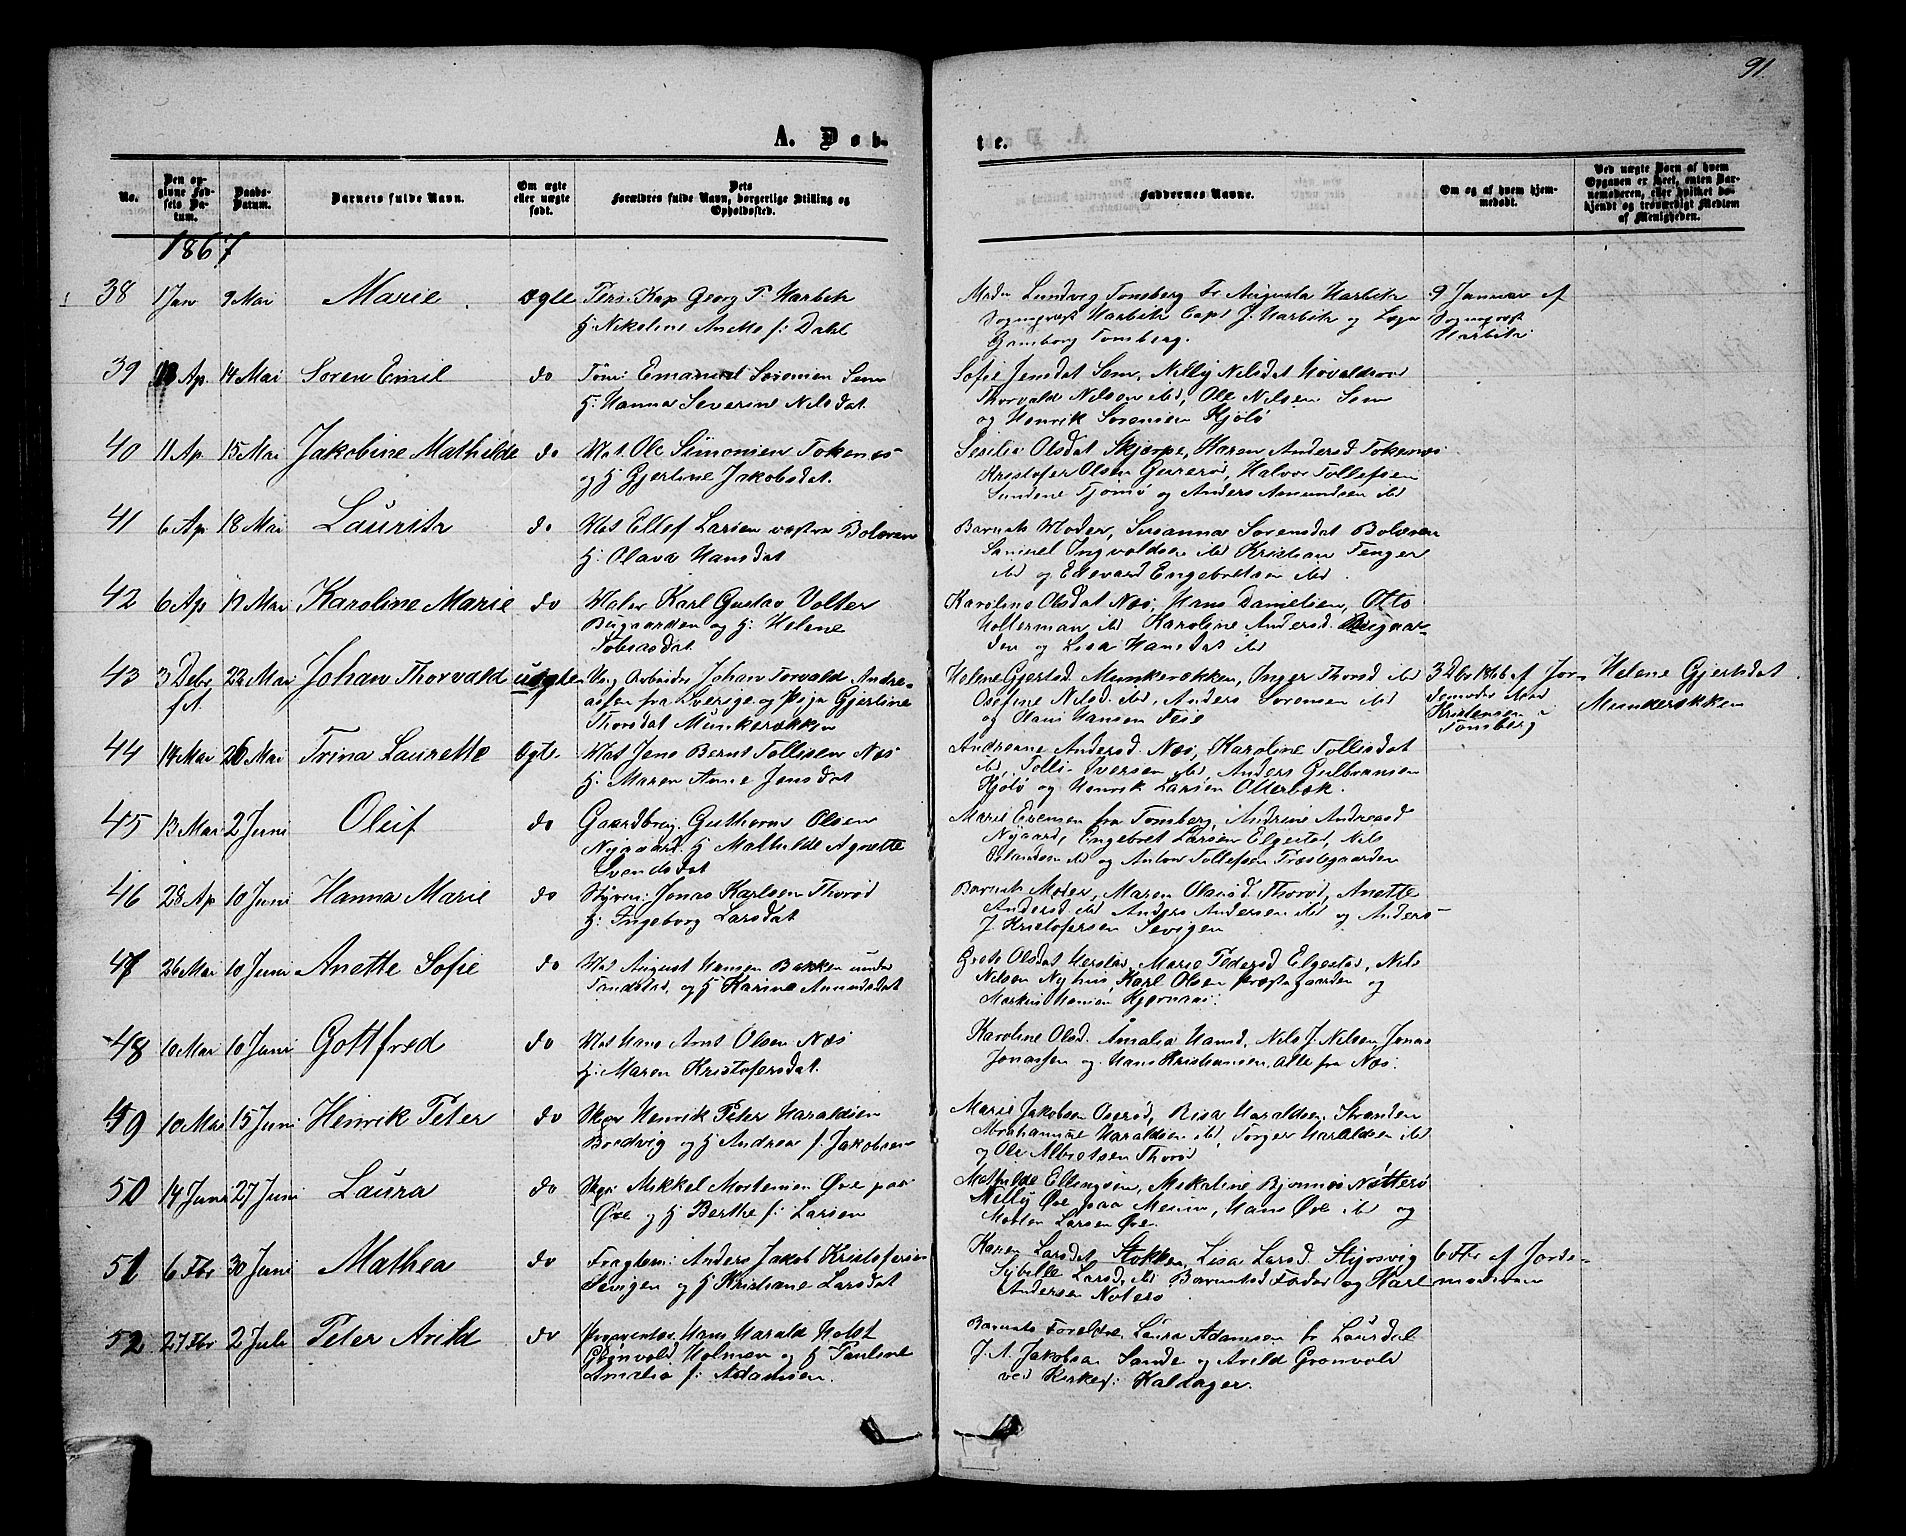 91.
A. Døb-
te.
No.
Den op-
givne Fød-
sels Da-
tum.
Daabs-
Datum.
Barnets fulde Navn.
Om ægte
eller uægte
født.
Dets
Forældres fulde Navn, borgerlige Stilling og
Opholdssted.
Faddernes Navne.
Om og af hvem hjem-
medøbt.
Ved uægte Børn af hvem
Opgaven er skeet, enten Bar-
nemoderen, eller hvilket be-
kjendt og troværdigt Medlem
af Menigheden.
1867
38 1 Jan 9 Mai Marie ægte Kap Georg P. Harbitz
H: Nikoline Anette f: Dahl
Lundvig Tonsberg Fr Augusta Harbitz
Sogneprest Harbitz Capt J. Harbitz og
Tonsberg.
9 Januar af
Sogneprest
Harbitz
39 Ap. 14 Mai Soren Emil do Tøm: Emanuel Sorensen Sem
H: Hanna Severine Nilsdat.
Sofie Jensdat Sem, Nilsdat
Thorvald Nilsen ibd, Ole Nilsen Sem
og Henrik Sorensen Kjølø
40 11 Ap 15 Mai Jakobine Mathilde do Mat. Ole Simonsen Tokenes
og H Gjertine Jakobsdat.
Sesilie Olsdat Skjerpe, Karen Andersd Tokenes
Kristofer Olsen, Halvor Tollefsen
Sundene Tjømø og Anders Amundsen ibd
41 6 Ap 18 Mai Lauritz do Mat Ellef Larsen vestre Bolæren
H: Olava Hansdat
Barnets Moder, Susanna Sorensdat Bolæren
Samuel Ingvoldsen ibd Kristian Tenger
ibd og Edevard Engebretsen ibd.
42 6 Ap Mai Karoline Marie do Karl Gustav Volter
Bugaarden og H: Helene
Tobiasdat
Karoline Olsdat Næs, Hans Danielsen, Otto
Holterman ibd Karoline Andersd. Bugaar-
den og Lisa Hansdat ibd
43 3 Debr 22 Mai Johan Thorvald uægte Ung Arbeider Johan Torvald Andre-
assen fra Sverige og Pige Gjertine
Thorsdat Munkerækken
Helene Gjertsd. Munkerækken, Inger Thorsd ibd
Osefine Nilsd ibd, Anders Sorensen ibd
og Hansen Feie
3 Dbr 1866 af Jor-
demoder
Kristensen
Tonsberg
Helene Gjertsdat
Munkerækken
44 14 Mai 26 Mai Trina Laurette Ægte Mat Jens Bernt Tollisen Næs
H: Maren Anne Jensdat
Andreane Andersd. Næs, Karoline Tollisdat
ibd, Tolli Iversen ibd, Anders Gulbransen
Kjøle og Henrik Larsen Otterbæk.
45 13 Mai 2 Juni Oluf do Gaardbrug. Guthorm Olsen
Nygaard. H Mathilde Agnette
Svendsdat
Marie Evensen fra Tonsberg, Andrine Andreasd
Nygaard, Engebret Larsen Elgestad, Nils
Erlandsen ibd og Anton Tollefsen Prestegaarden
46 28 Ap 10 Juni Hanna Marie do Styrm: Jonas Karlsen Thorød
H: Ingeborg Larsdat
Barnets Moder, Maren Thorød, Anette
Andersd ibd Anders Andersen ibd og Anders
J. Kristofersen Tevigen
47 26 Mai 10 Juni Anette Sofie do Mat August Hansen Bakken under
og H Karine Amundsdat
Grete Olsdat Herstad, Marie Pedersd Elgestad, Nils
Nilsen Nyhus, Karl Olsen Prestegaarden og
Markus Hansen Kjernæs.
48 10 Mai 10 Juni Gottfred do Mat Hans Arnt Olsen Næs
H: Maren Kristofersdat.
Karoline Olsd. Amalia Hansd, Nils J. Nilsen, Jonas
Jonassen og Hans Kristiansen, alle fra Næs.
49 10 Mai 15 Juni Henrik Peter do Skpr Henrik Peter Haraldsen
Bredvig og H Andrea f: Jakobsen
Marie Jakobsen Oserød, Haraldsen Stranden
Haraldsen ibd, Torger Haraldsen ibd
og Ole Albretsen Thorød
50 14 Juni 27 Juni Laura do Skpr Mikkel Mortensen Øre paa
Øre og H Berthe f: Larsen
Mathilde Ellingsen, Mekaline Bjønnes Nøtterø
Nelly Øre paa, Hans Øre ibd og
Larsen Øre.
51 6 Fbr 30 Juni Mathea do Anders Jakob Kristofersen
Tevigen og H Kristiane Larsdat
Karen Larsdat Stokken, Lisa Larsd.
Sybille Larsd. ibd Barnets Fader og Karl
Andersen Noterø
6 Fbr af Jorde-
moderen
52 27 Fbr 2 Juli Peter Arild do Proprietær, Hans Harald Holst
Grønvold Holmen og H Pauline
Amalia f: Adamsen.
Barnets Foreldre, Laura Adamsen fr Laurdal
J. A. Jakobsen Sande og Arild Gronvold
ved Kirkes: Kaldager.